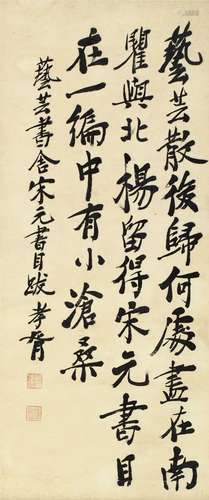 藝芸散後歸何處盡在南
瞿與北楊留得宋元書目
在一編中有小滄桑
藝芸書舍宋元書目跋 孝胥